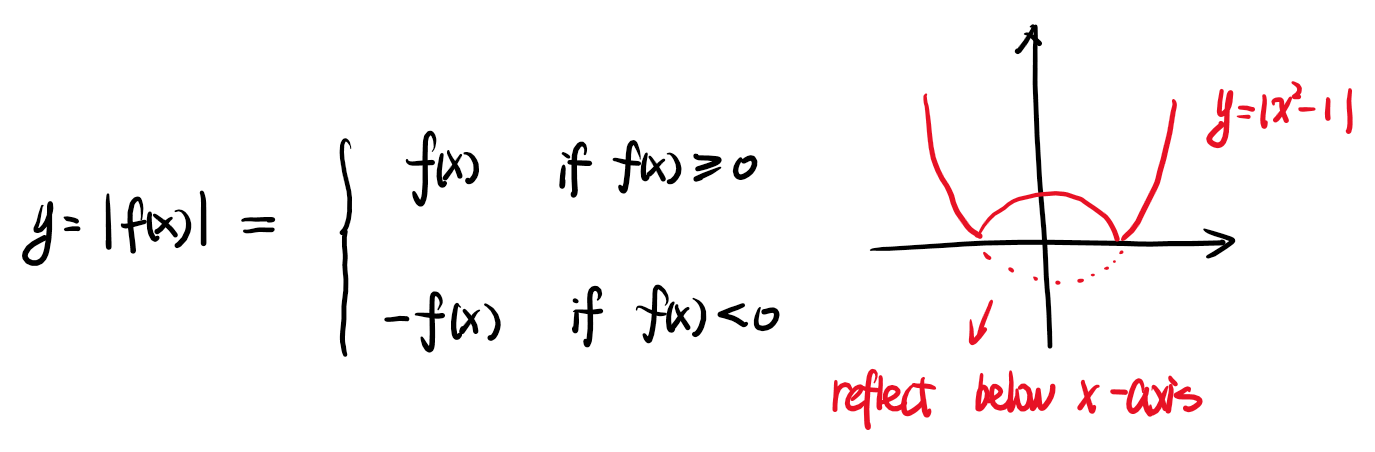 y = |f(x)| = { f(x) if f(x) ≥ 0
-f(x) if f(x) < 0
y=|x²-1|
reflect below x-axis